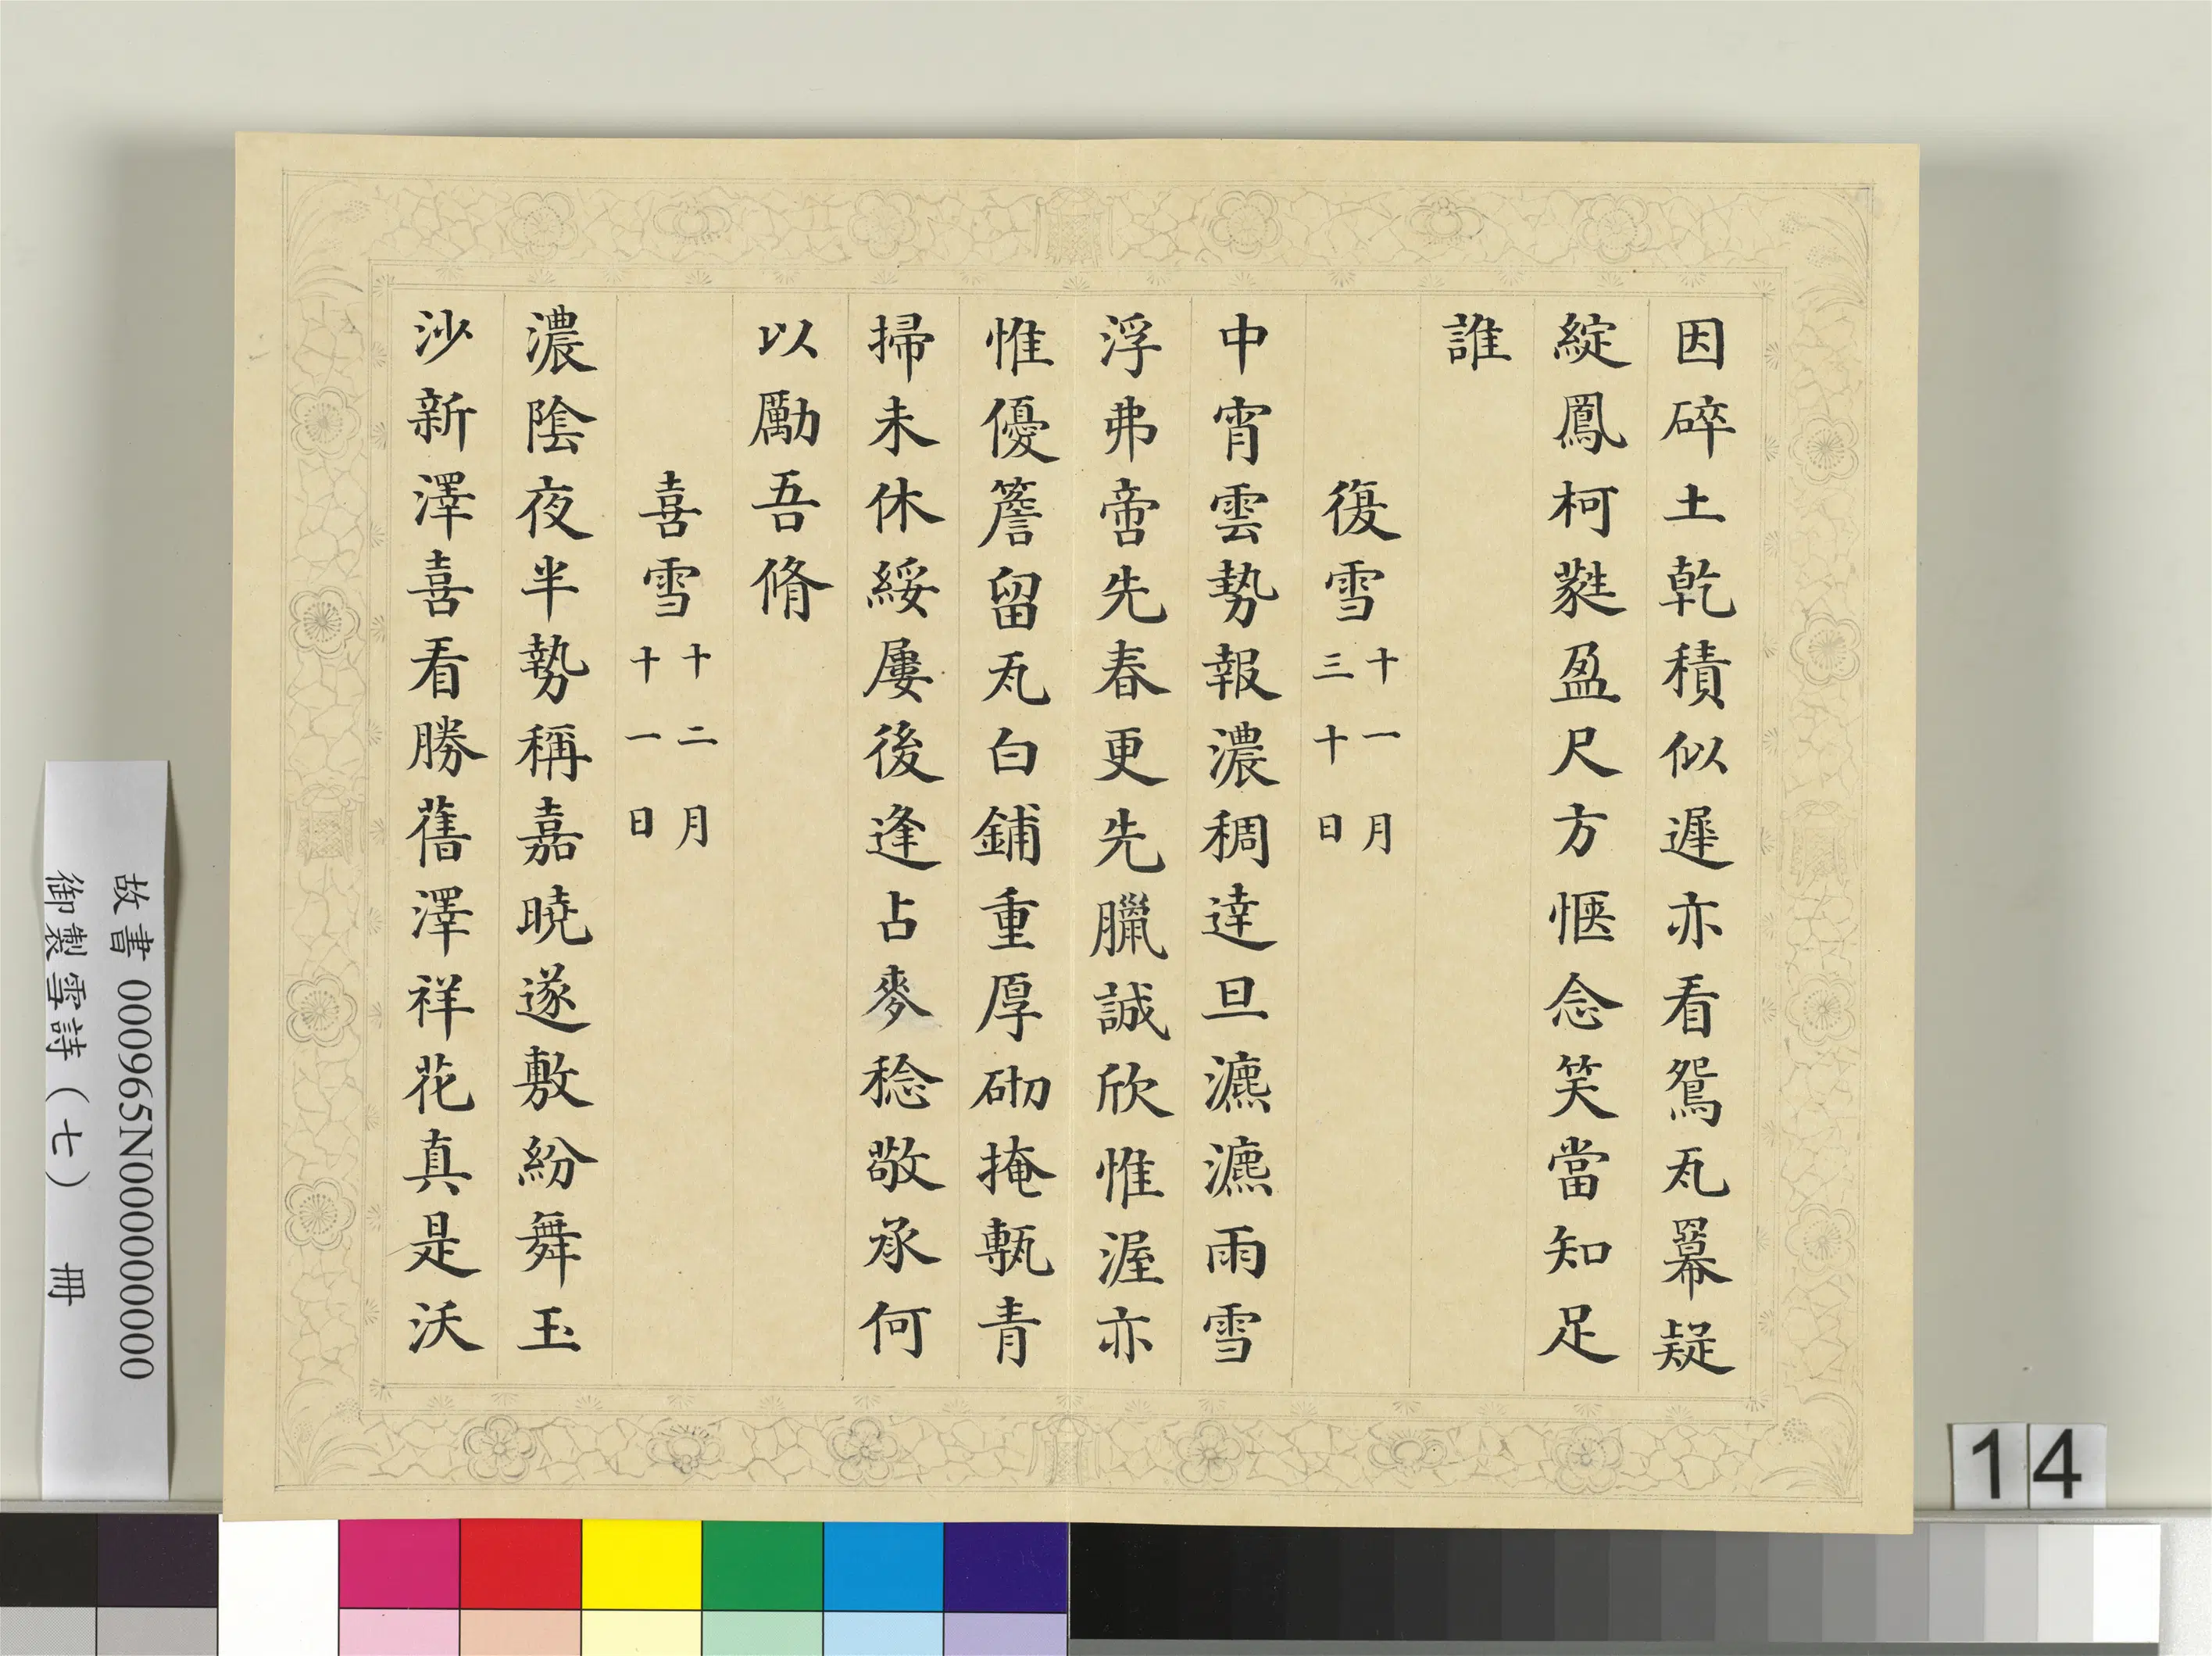 因碎土乾積似遲亦看鴛瓦羃疑
綻鳳柯蕤盈尺方愜念笑當知足
誰
復雪十一月三十日
中宵雲勢報濃稠達旦瀌瀌雨雪
浮弗啻先春更先臘誠欣惟渥亦
惟優簷留瓦白鋪重厚砌掩甎青
掃未休綏屢後逢占麥稔敬承何
以勵吾脩
喜雪十二月十一日
濃陰夜半勢稱嘉曉遂敷紛舞玉
沙新澤喜看勝舊澤祥花真是沃
故書000965N000000000
御製雪詩(七) 冊
14